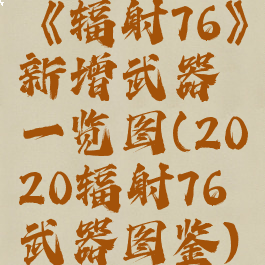 《辐射76》
新增武器
一览图(20
20辐射76
武器图鉴)